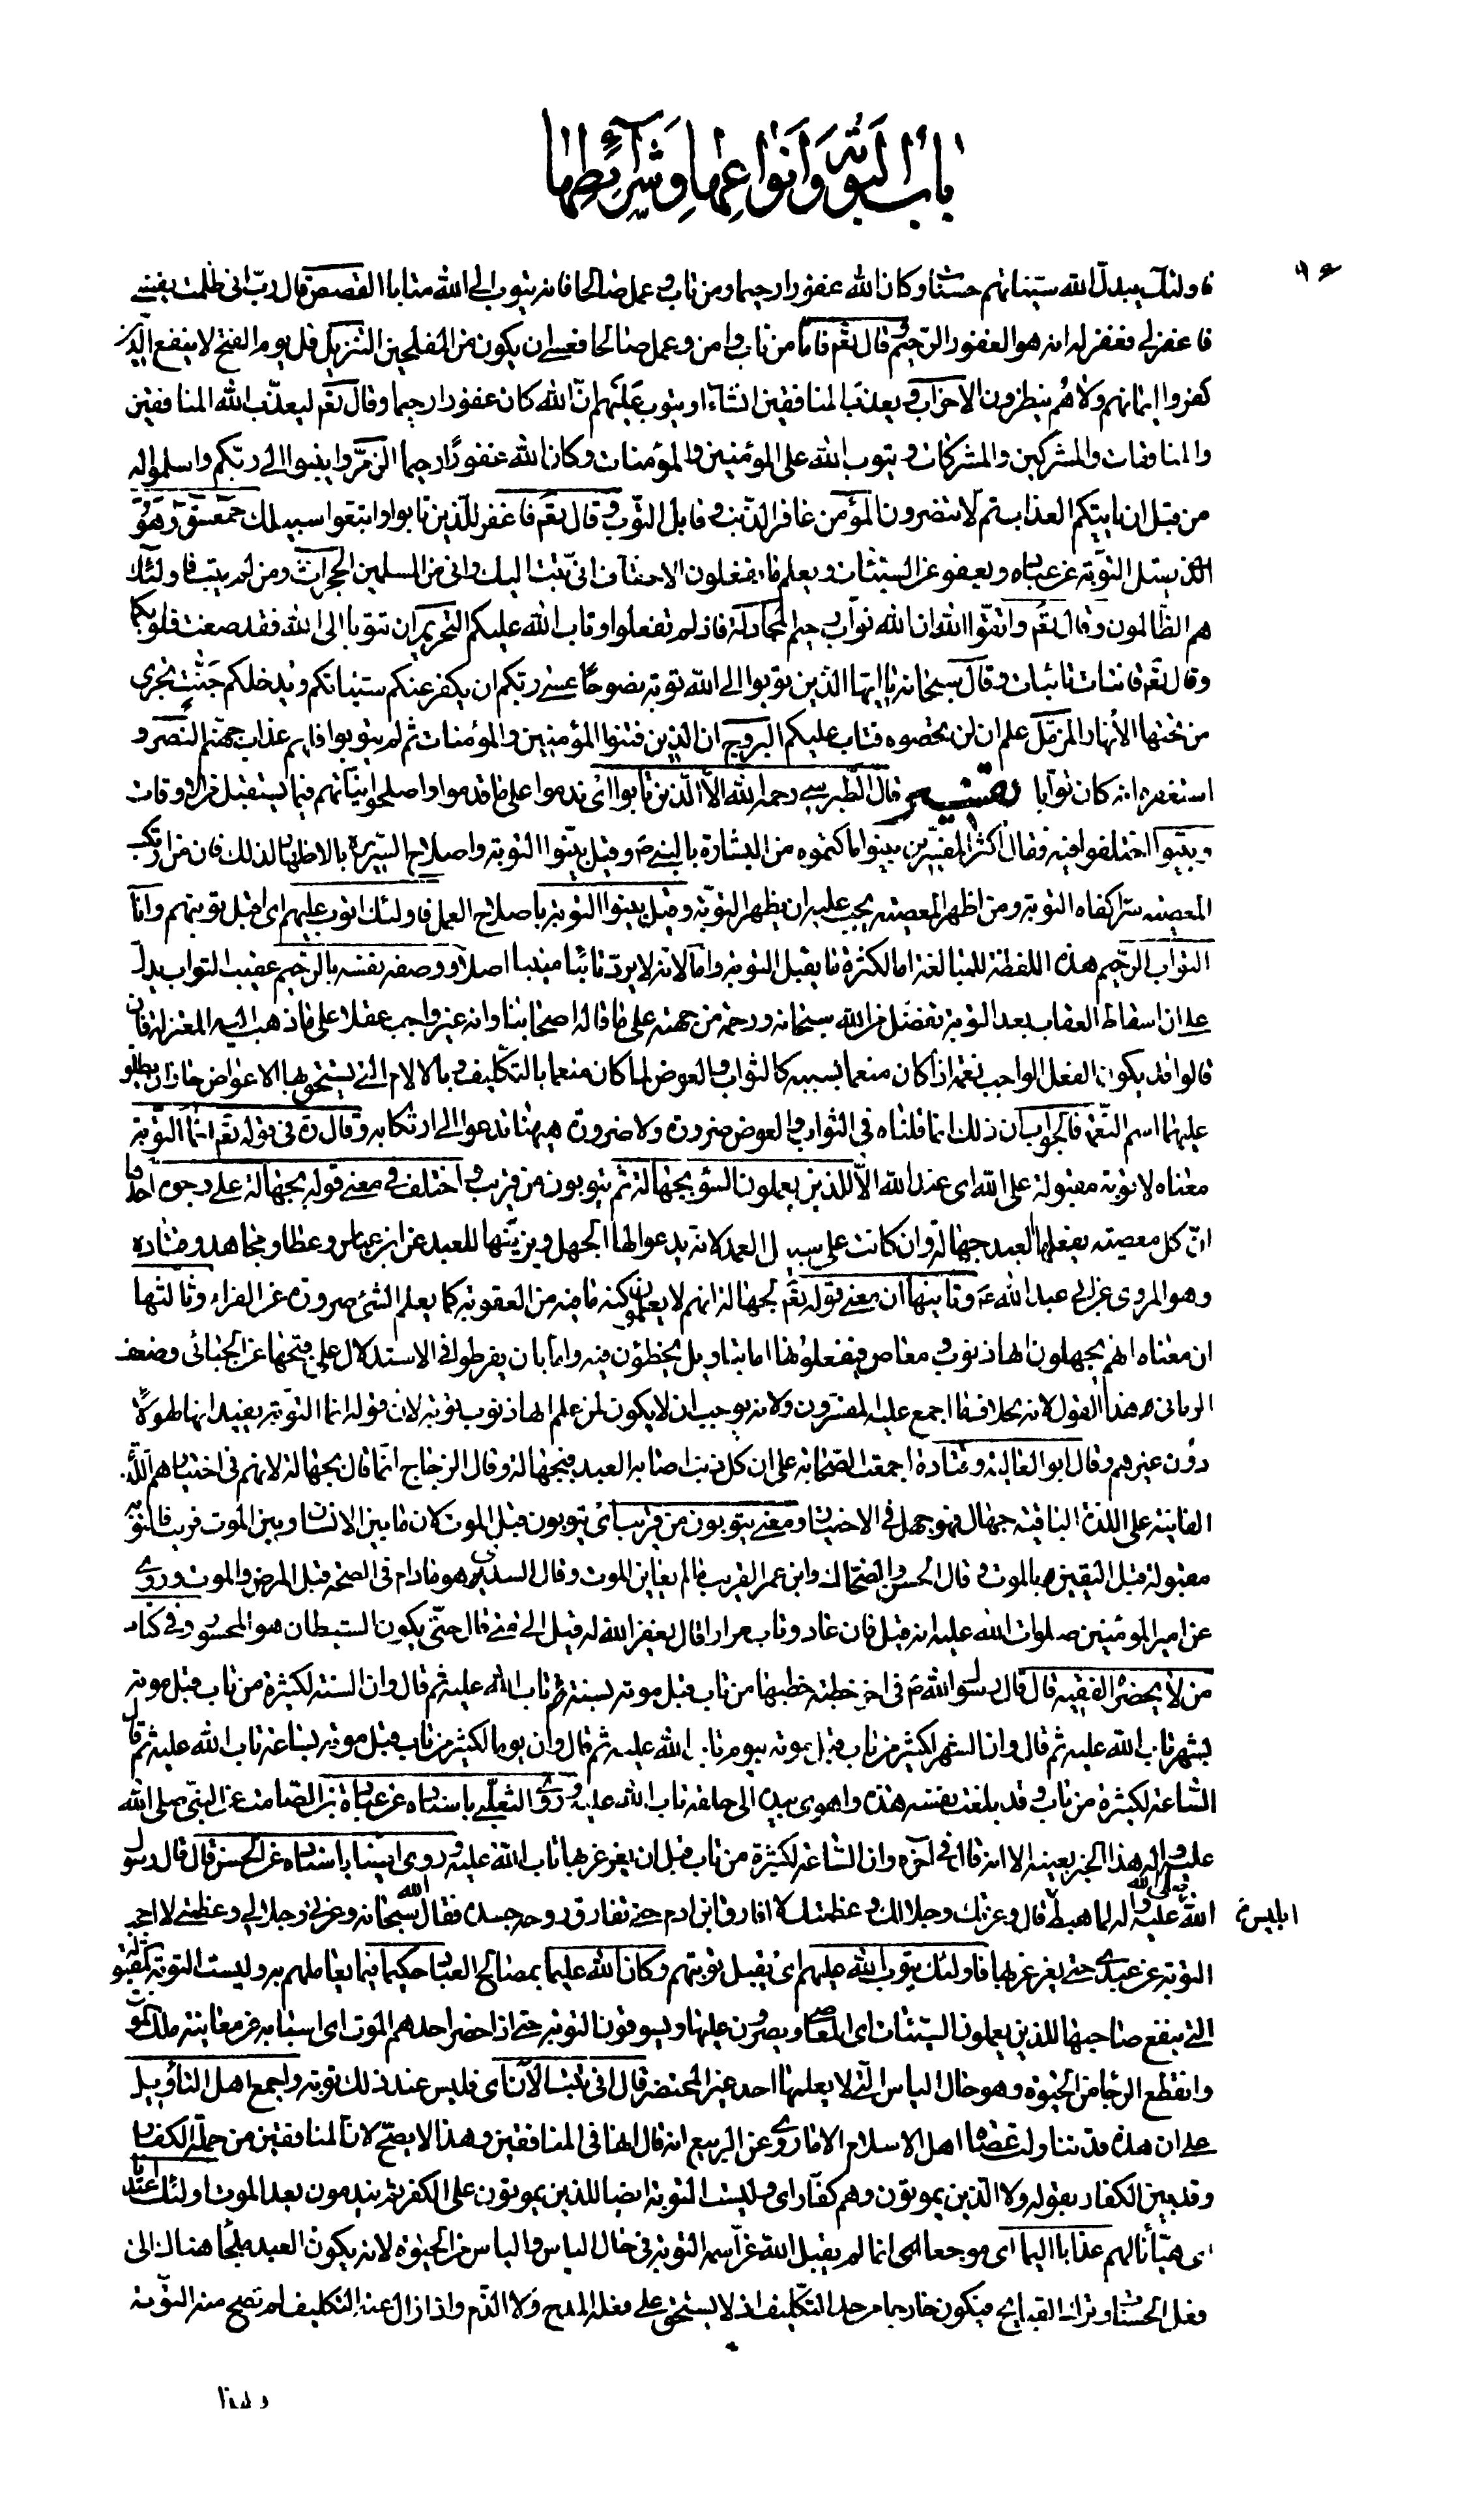 باب التوبة وانواعها وشرائطها
فاولئك يبدل الله سيئاتهم حسنات وكان الله غفورا رحيما ومن تاب وعمل صالحا فانه يتوب الى الله متابا القصص قال رب انى ظلمت نفسى
فاغفر لى فغفر له انه هو الغفور الرحيم وقال تعم فاما من تاب وامن وعمل صالحا فعسى ان يكون من المفلحين التنزيل قل يوم الفتح لا ينفع الذين
كفروا ايمانهم ولا هم ينظرون الاحزاب ويعذب المنافقين انشاء او يتوب عليهم ان الله كان غفورا رحيما وقال تعم ليعذب الله المنافقين
والمنافقات والمشركين والمشركات ويتوب الله على المؤمنين والمؤمنات وكان الله غفورا رحيما الزمر وانيبوا الى ربكم واسلموا له
من قبل ان ياتيكم العذاب ثم لا تنصرون المؤمن غافر الذنب وقابل التوب وقال تعم فاغفر للذين تابوا واتبعوا سبيلك حمعسق وهو
الذى يقبل التوبة عن عباده ويعفو عن السيئات ويعلم ما تفعلون الاحقاف انى تبت اليك وانى من المسلمين الحجرات ومن لم يتب فاولئك
هم الظالمون وقال تعم واتقوا الله ان الله تواب رحيم المجادلة فاذ لم تفعلوا وتاب الله عليكم التحريم ان تتوبا الى الله فقد صغت قلوبكما
وقال تعم قانتات تائبات وقال سبحانه يا ايها الذين توبوا الى الله توبة نصوحا عسى ربكم ان يكفر عنكم سيئاتكم ويدخلكم جنت تجرى
من تحتها الأنهار المزمل علم ان لن تحصوه فتاب عليكم البروج ان الذين فتنوا المؤمنين والمؤمنات ثم لم يتوبوا فلهم عذاب جهنم النصر و
استغفره انه كان توابا تفسير قال الطبرسى رحمه الله الا الذين تابوا اى ندموا على ما قدموا واصلحوا نياتهم فيما يستقبل من الاوقات
وبينوا اختلفوا فيه فقال اكثر المفسرين بينوا ما كتموه من البشارة بالنبى ص وقيل بينوا التوبة واصلاح السريرة بالاظهار لذلك فان من ارتكب
المعصية سرا كفاه التوبة ومن اظهر المعصية يجب عليه ان يظهر التوبة وقيل بينوا التوبة باصلاح العمل فاولئك اتوب عليهم اى اقبل توبتهم وانا
التواب الرحيم هذه اللفظة للمبالغة اما لكثرة ما يقبل التوبة واما لانه لا يرد تائبا منيبا اصلا ووصفه نفسه بالرحيم عقيب التواب يدل
على ان اسقاط العقاب بعد التوبة تفضل من الله سبحانه ورحمة من جهته على ما قاله اصحابنا وانه غير واجب عقلا على ما ذهب اليه المعتزلة فان
قالوا قد يكون الفعل الواجب نعمة اذا كان منعما بسببه كالثواب والعوض لما كان منعما بالتكليف وبالالام التى يستحق بها الاعواض جاز ان يطلق
عليهما اسم النعمة فالجواب ان ذلك انما قلناه فى الثواب والعوض ضرورة ولا ضرورة هيهنا تدعو الى ارتكابه وقال ره فى قوله تعم انما التوبة
معناه لا توبة مقبولة على الله اى عند الله الا للذين يعملون السوء بجهالة ثم يتوبون من قريب واختلف فى معنى قوله بجهالة على وجوه احدها
ان كل معصية يفعلها العبد جهالة وان كانت على سبيل العمد لانه يدعو اليها الجهل ويزينها للعبد عن ابن عباس وعطا ومجاهد وقتاده
وهو المروى عن ابى عبد الله ع وثانيها ان معنى قوله تعم بجهالة انهم لا يعلمون كنه ما فيه من العقوبة كما يعلم الشئ ضرورة عن الفراء وثالثها
ان معناه انهم يجهلون انها ذنوب ومعاص فيفعلونها اما بتاويل يخطؤن فيه واما بان يفرطوا فى الاستدلال على قبحها عن الجبائى وضعف
الرمانى هذا القول لانه بخلاف ما اجمع عليه المفسرون ولانه يوجب ان لا يكون لمن علم انها ذنوب توبة لان قوله انما التوبة يفيد انها لهؤلاء
دون غيرهم وقال ابو العالية وقتادة اجمعت الصحابة على ان كل ذنب اصابه العبد فبجهالة وقال الزجاج انما قال بجهالة لانهم فى اختيارهم اللذة
الفانية على اللذة الباقية جهال فهو جهل فى الاختيار ومعنى يتوبون من قريب اى يتوبون قبل الموت لان ما بين الانسان وبين الموت قريب فالتوبة
مقبولة قبل اليقين بالموت وقال الحسن والضحاك وابن عمر القريب ما لم يعاين الموت وقال السدى هو ما دام فى الصحة قبل المرض والموت وروى
عن امير المومنين صلوات الله عليه انه قيل فان عاد وتاب مرارا قال يغفر الله له قيل الى متى قال حتى يكون الشيطان هو المحسور وفى كتاب
من لا يحضره الفقيه قال قال رسول الله ص فى اخر خطبة خطبها من تاب قبل موته بسنة تاب الله عليه ثم قال وان السنة لكثيرة من تاب قبل موته
بشهر تاب الله عليه ثم قال وان الشهر لكثير من تاب قبل موته بيوم تاب الله عليه ثم قال وان يوما لكثير من تاب قبل موته بساعة تاب الله عليه ثم قال
الساعة لكثيرة من تاب وقد بلغت نفسه هذه واهوى بيده الى حلقه تاب الله عليه وروى الثعلبى باسناده عن عبادة بن الصامت عن النبى صلى الله
عليه واله هذا الخبر بعينه الا انه قال فى آخره وان الساعة لكثيرة من تاب قبل ان يغرغر بها تاب الله عليه وروى ايضا باسناده عن الحسن قال قال رسول
الله صلى الله عليه واله لما هبط ابليس قال وعزتك وجلالك وعظمتك لا افارق ابن ادم حتى تفارق روحه جسده فقال الله سبحانه وعزتى وجلالى وعظمتى لا احجب
التوبة عن عبدى حتى يغرغر بها فاولئك يتوب الله عليهم اى يقبل توبتهم وكان الله عليما بمصالح العباد حكيما فيما يعاملهم به وليست التوبة المقبولة
التى ينفع صاحبها للذين يعملون السيئات اى المعاصى ويصرون عليها ويسوفون التوبة حتى اذا حضر احدهم الموت اى اسبابه من معاينة ملك الموت
وانقطع الرجا من الحيوة وهو حال الياس التى لا يعلمها احد غير المحتضر قال انى تبت الآن اى فليس عند ذلك توبة واجمع اهل التأويل
على ان هذه قد تناولت عصاة اهل الاسلام الا ما روى عن الربيع انه قال انها فى المنافقين وهذا لا يصح لان المنافقين من جملة الكفار
وقد بين الكفار بقوله ولا الذين يموتون وهم كفار اى وليست التوبة ايضا للذين يموتون على الكفر ثم يندمون بعد الموت اولئك اعتدنا
اى هيأنا لهم عذابا اليما اى موجعا وانما لم يقبل الله عز اسمه التوبة فى حال الياس والياس من الحيوة لانه يكون العبد ملجأ هناك الى
فعل الحسنات وترك القبايح فيكون خارجا من حد التكليف اذ لا يستحق على فعله المدح ولا الذم واذا زال عنه التكليف لم تصح منه التوبة
ولهذا